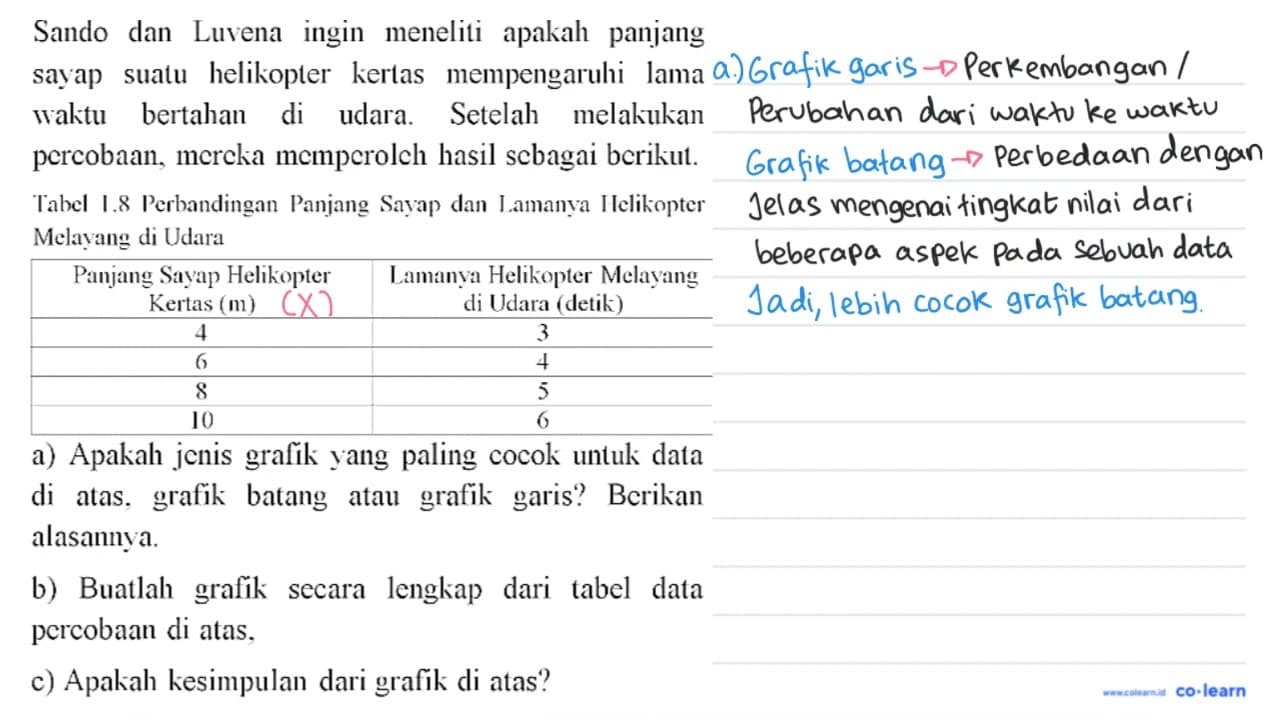 Sando dan Luvena ingin meneliti apakah panjang
sayap suatu helikopter kertas mempengaruhi lama
waktu bertahan di udara. Setelah melakukan
percobaan, mereka memperoleh hasil sebagai berikut.
Tabel 1.8 Perbandingan Panjang Sayap dan Lamanya Helikopter
Melayang di Udara
Panjang Sayap Helikopter Kertas (m) (X)
Lamanya Helikopter Melayang di Udara (detik)
4 3
6 4
8 5
10 6
a) Apakah jenis grafik yang paling cocok untuk data
di atas, grafik batang atau grafik garis? Berikan
alasannya.
b) Buatlah grafik secara lengkap dari tabel data
percobaan di atas,
c) Apakah kesimpulan dari grafik di atas?
a.) Grafik garis → Perkembangan /
Perubahan dari waktu ke waktu
Grafik batang → Perbedaan dengan
Jelas mengenai tingkat nilai dari
beberapa aspek pada sebuah data
Jadi, lebih cocok grafik batang.
www.colearn.id co·learn